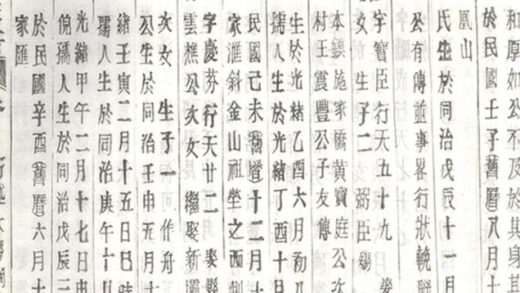 和厚如公不及於其身其
於民國壬子舊曆八月十
鳳山
氏生於同治戊辰十一月
公有傳並事畧行狀輓聯
字寶臣行天五十九 娶縣
女 生子二 弼臣錫
本鎮施家橋黃寶庭公次
村王震豐公子友傳
生於光緒乙酉六月初八
孺人生於光緒丁酉十
民國己未舊曆十二月
家滙斜金山祖塋之西
字慶芬行天廿二 娶縣
雲樵公次女 繼娶新
次女 生子一 作舟
公生於同治壬申五月十
緒壬寅二月十五日巳時
人生於同治庚午
光緒甲午二月十七日申
孺人生於同治戊辰二
於民國辛酉舊曆六月十
家匯